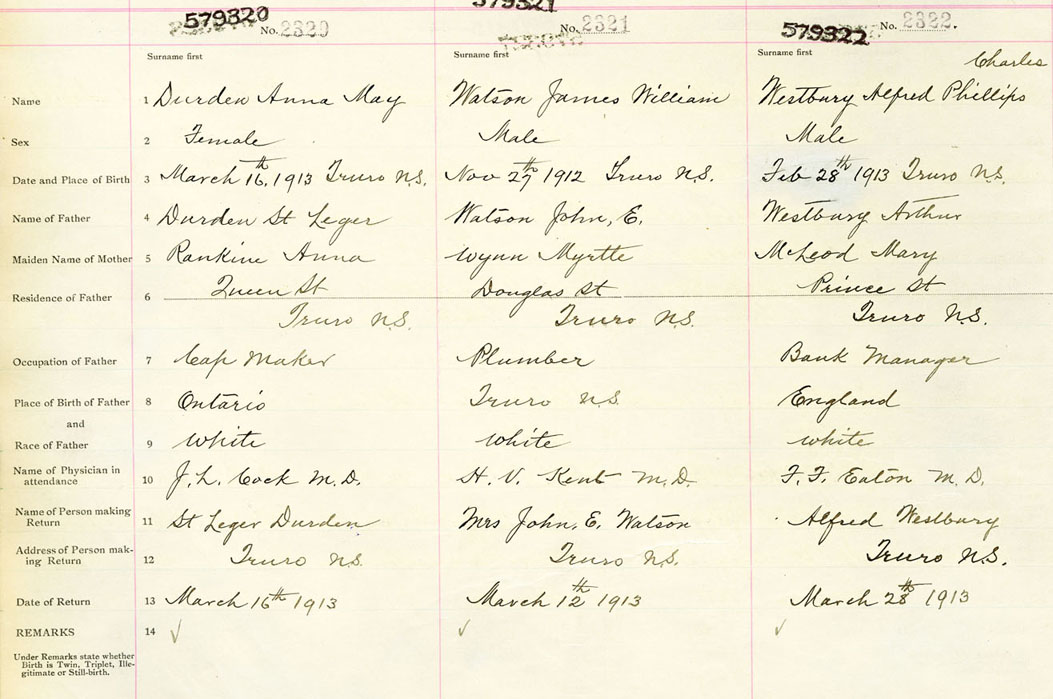 579320 No. 2320 579321 No. 2321 579322 No. 2322.
Surname first Surname first Surname first Charles
Name 1 Durden Anna May Watson James William Westbury Alfred Phillips
Sex 2 Female Male Male
Date and Place of Birth 3 March 16th, 1913 Truro N.S. Nov 27th 1912 Truro N.S. Feb 28th 1913 Truro N.S.
Name of Father 4 Durden St Leger Watson John, E. Westbury Arthur
Maiden Name of Mother 5 Rankine Anna Wynn Myrtle McLeod Mary
Residence of Father 6 Queen St Douglas St Prince St
Truro N.S. Truro N.S. Truro N.S.
Occupation of Father 7 Cap Maker Plumber Bank Manager
Place of Birth of Father 8 Ontario Truro N.S. England
and
Race of Father 9 White White White
Name of Physician in
attendance 10 J. L. Cock M.D. H. V. Kent M.D. F. F. Eaton M.D.
Name of Person making
Return 11 St Leger Durden Mrs John, E. Watson Alfred Westbury
Address of Person mak-
ing Return 12 Truro N.S. Truro N.S. Truro N.S.
Date of Return 13 March 16th 1913 March 12th 1913 March 28th 1913
REMARKS 14 ✓ ✓ ✓
Under Remarks state whether
Birth is Twin, Triplet, Ille-
gitimate or Still-birth.